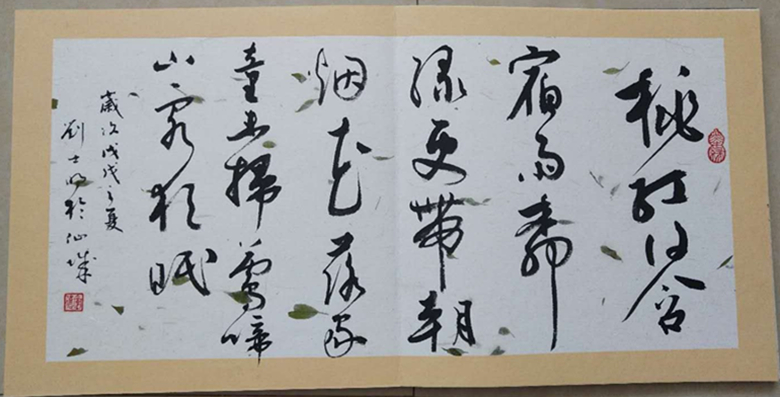 桃紅復含
宿雨柳
綠更帶朝
烟花落家
童未掃鶯啼
山客猶眠
歲次戊戌之夏
劉士明於仙城